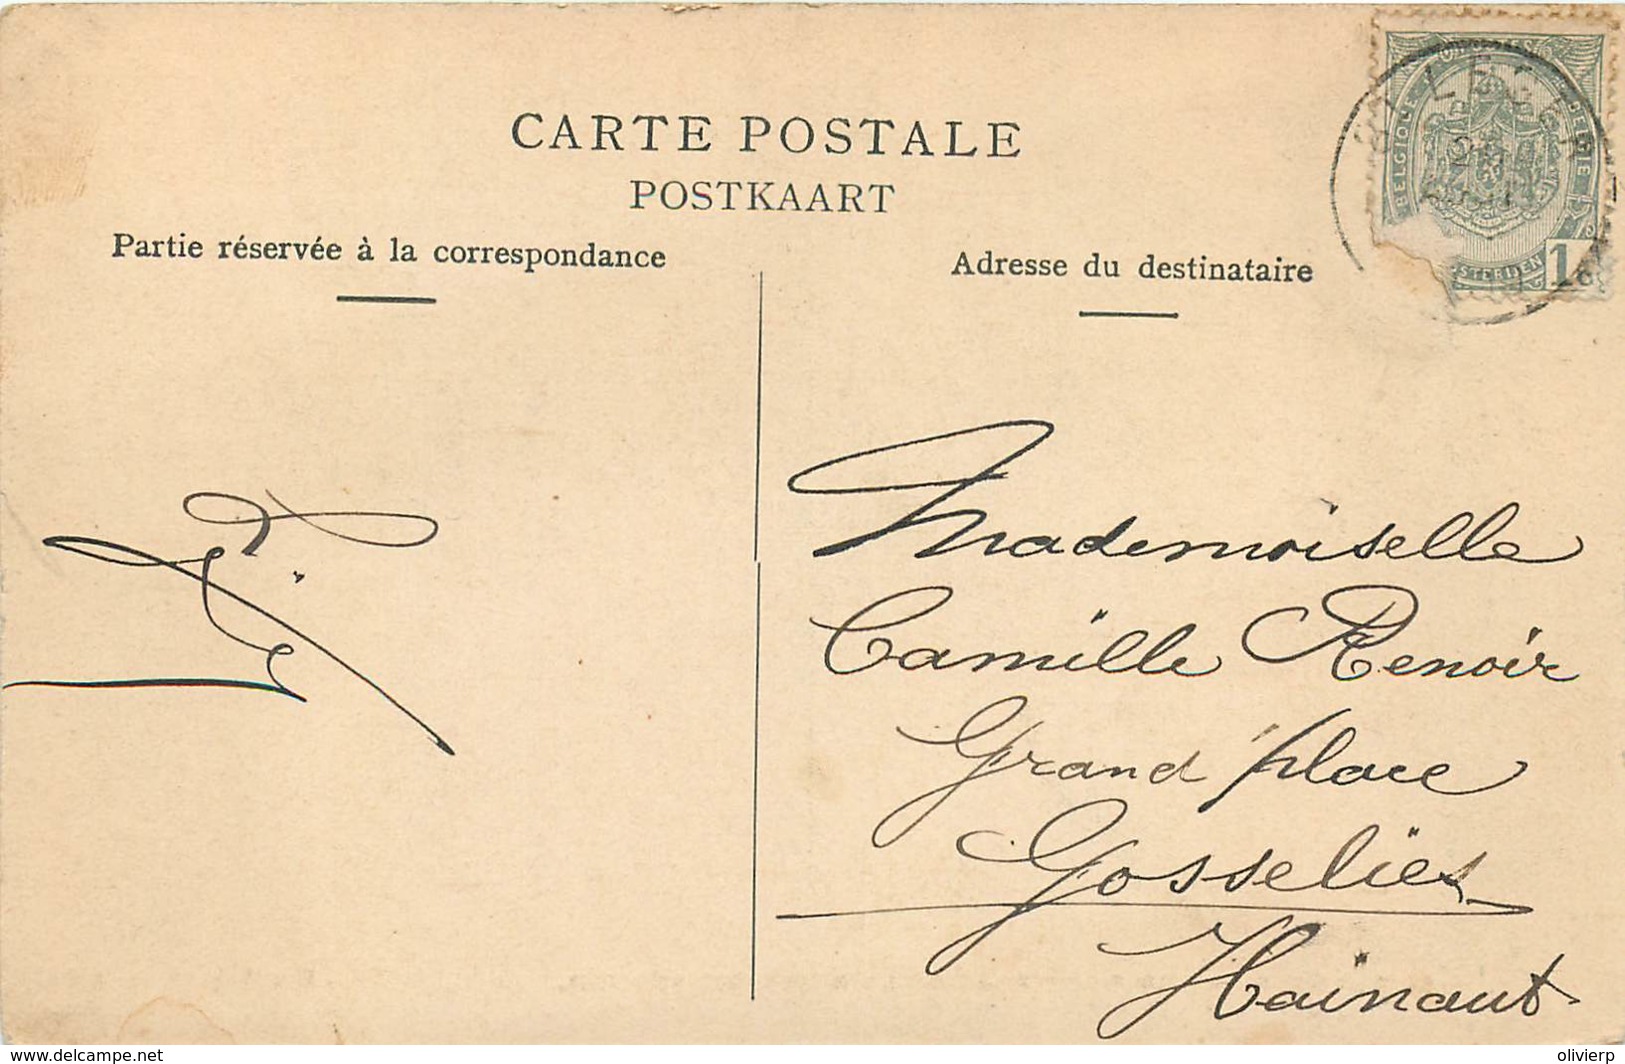 CARTE POSTALE
POSTKAART
Partie réservée à la correspondance
Adresse du destinataire
BELGIQUE
BELGIE
1
Mademoiselle
Camille Renoir
Grand'place
Gosselies
Hainaut
www.delcampe.net
olivierp